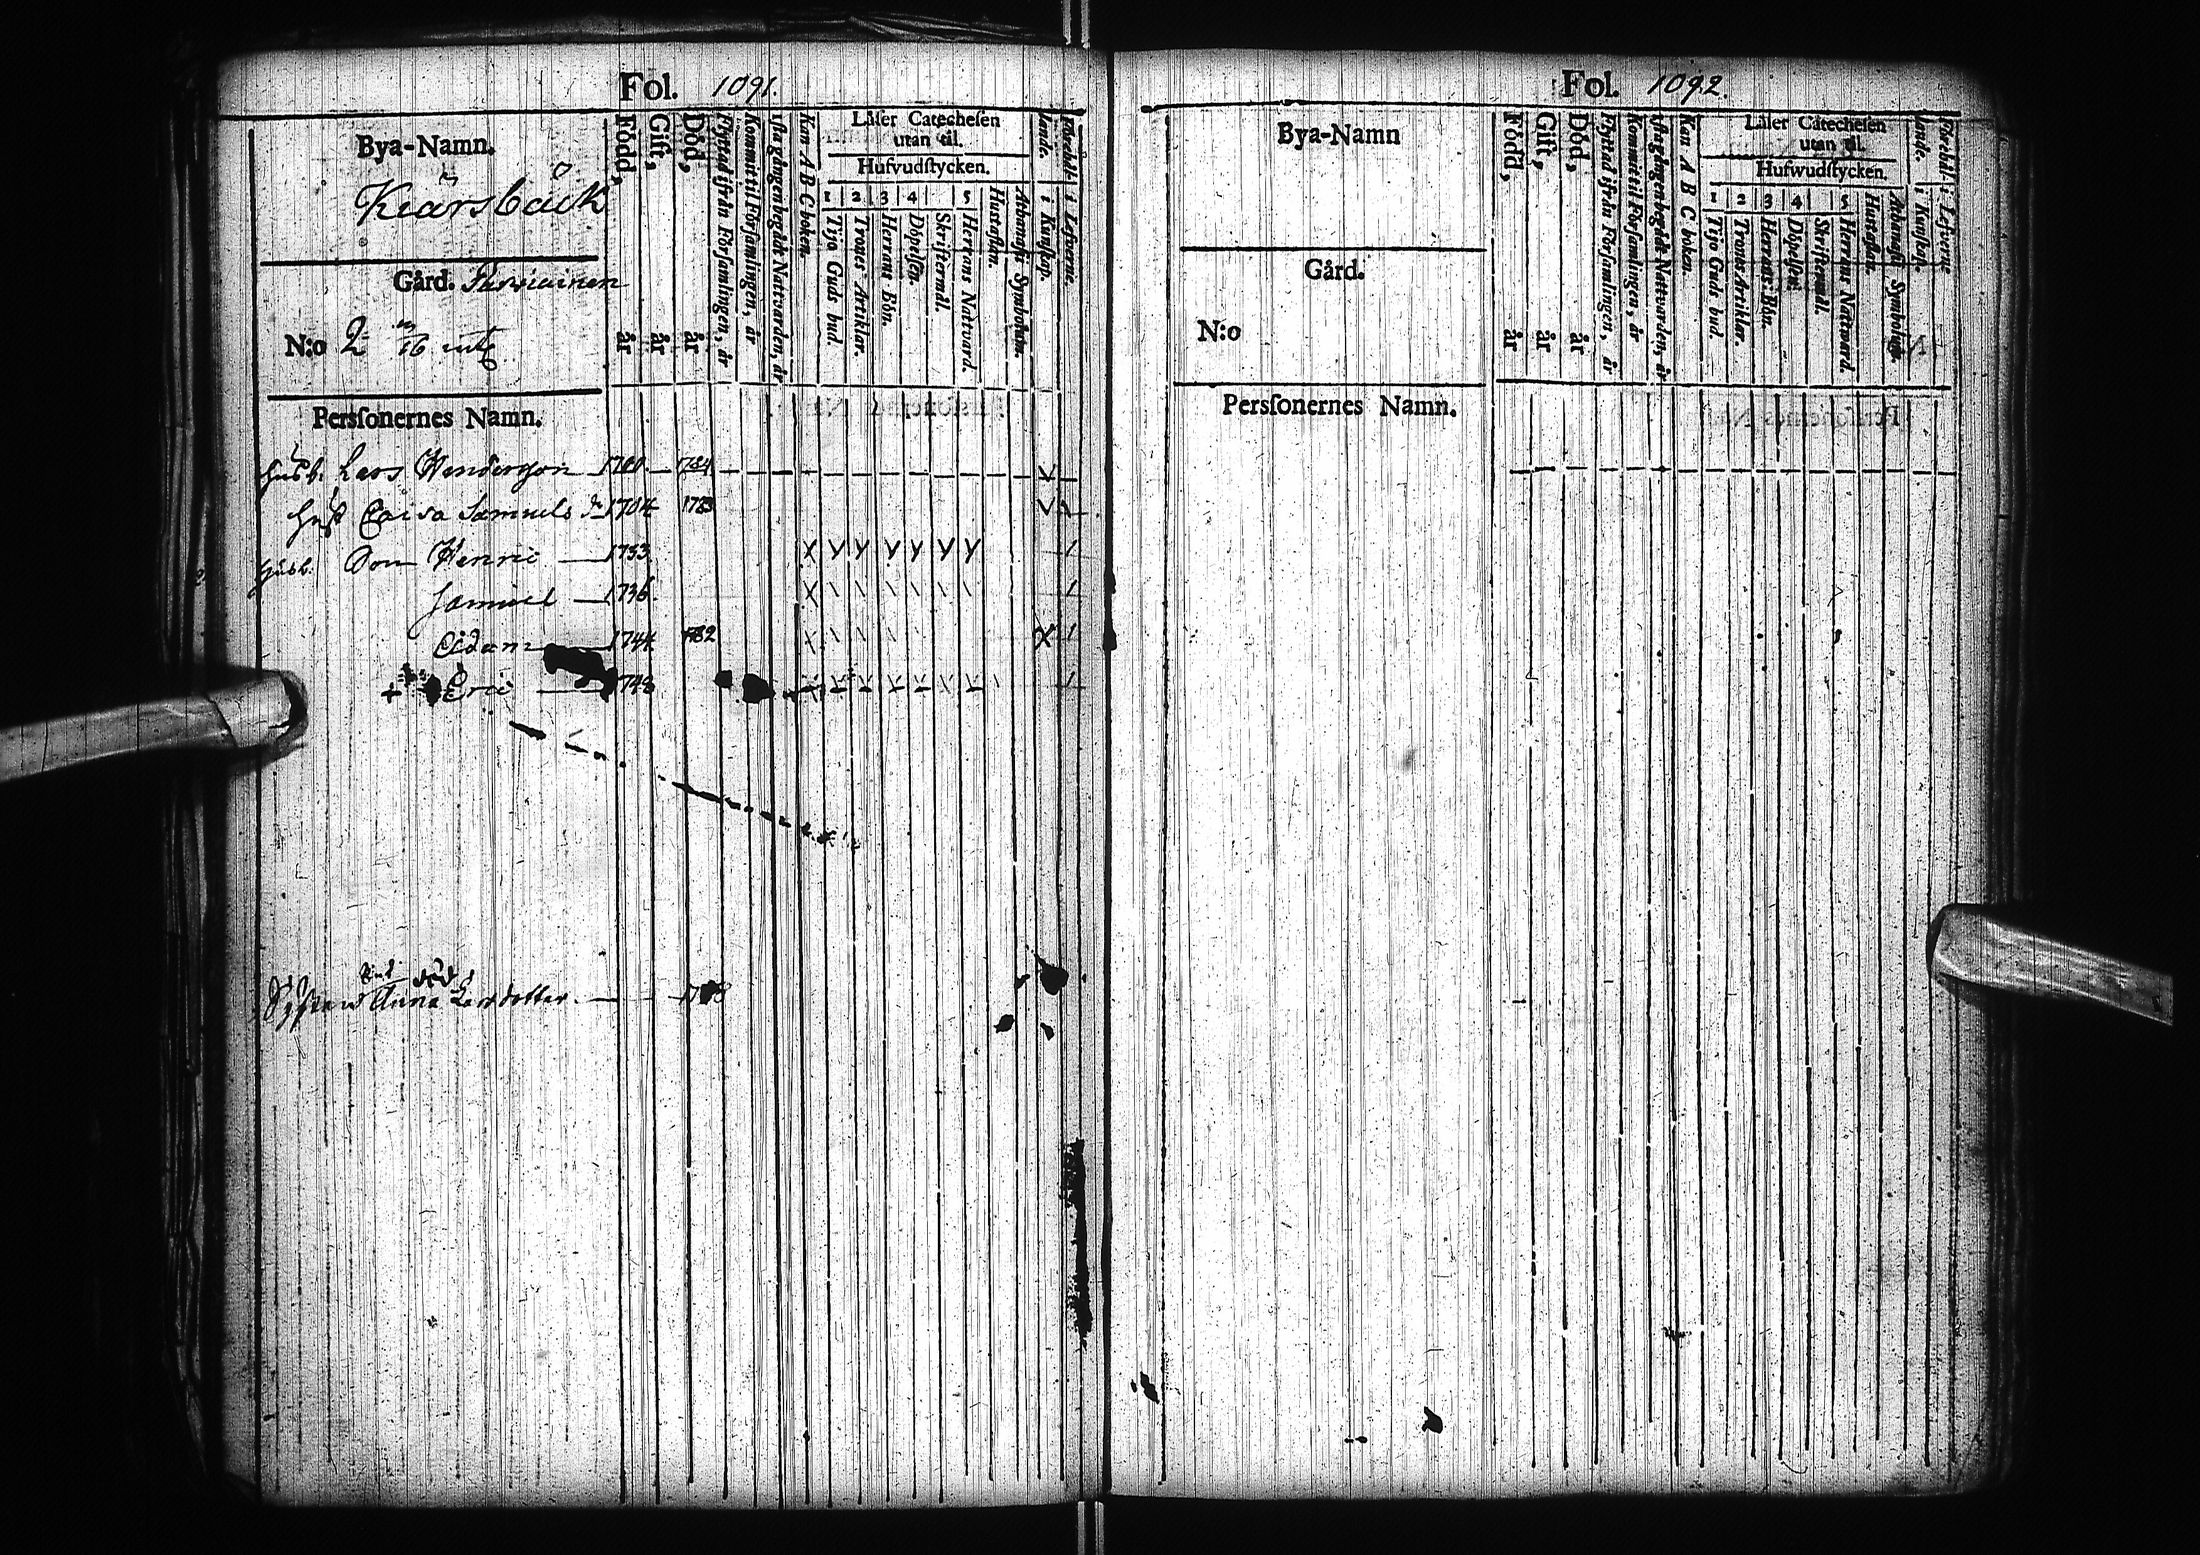 Fol. 1091.
Bya-Namn.
Född, år
Gift, år
Död, år
Flyttad ifrån Församlingen, år
Kommit til Församlingen, år
1sta gången begådt Nattvarden, år
Kan A B C boken.
Läser Catechesen
utan til.
Hufvudstycken.
1 2 3 4 5
Tijo Guds bud.
Trones Artiklar.
Herrans Bön.
Döpelsen.
Skriftermål.
Herrans Nattvard.
Hustaflan.
Athanasii Symbolum.
i Kunskap.
i Lefverne.
Gård.
N:o 2
Personernes Namn.
Husb. Lars Hendersson 1700. 1784
Hust Caisa Samuels dr 1704 1783
Husb. Son Henric 1733.
Samuel 1736.
Adam 1744 1782
+ Eric 1748
Anna Larsdotter.
Fol. 1092.
Bya-Namn
Född, år
Gift, år
Död, år
Flyttad ifrån Församlingen, år
Kommit til Församlingen, år
1sta gången begådt Nattvarden, år
Kan A B C boken.
Läser Catechesen
utan til.
Hufwudstycken.
1 2 3 4 5
Tijo Guds bud.
Trones Artiklar.
Herrans Bön.
Döpelsen.
Skriftermål.
Herrans Nattvard.
Hustaflan.
Athanasii Symbolum.
i Kunskap.
i Lefverne
Gård.
N:o
Personernes Namn.